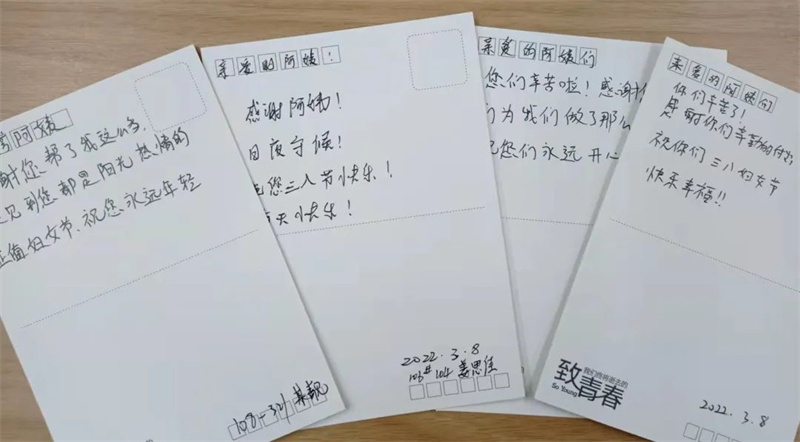 阿姨
谢您帮了我这么多,
见到您都是阳光热情的
正值妇女节,祝您永远年轻
108-321
亲爱的阿姨:
感谢阿姨!
日夜守候!
祝您三八节快乐!
天天快乐!
2022.3.8
106# 104 姜思佳
亲爱的阿姨们
您们辛苦啦!感谢
们为我们做了那么
祝您们永远开心
亲爱的阿姨们
你们辛苦了!
感谢你们辛勤的付出
祝你们三八妇女节
快乐幸福!!
致青春
我们终将逝去的
So Young
2022.3.8